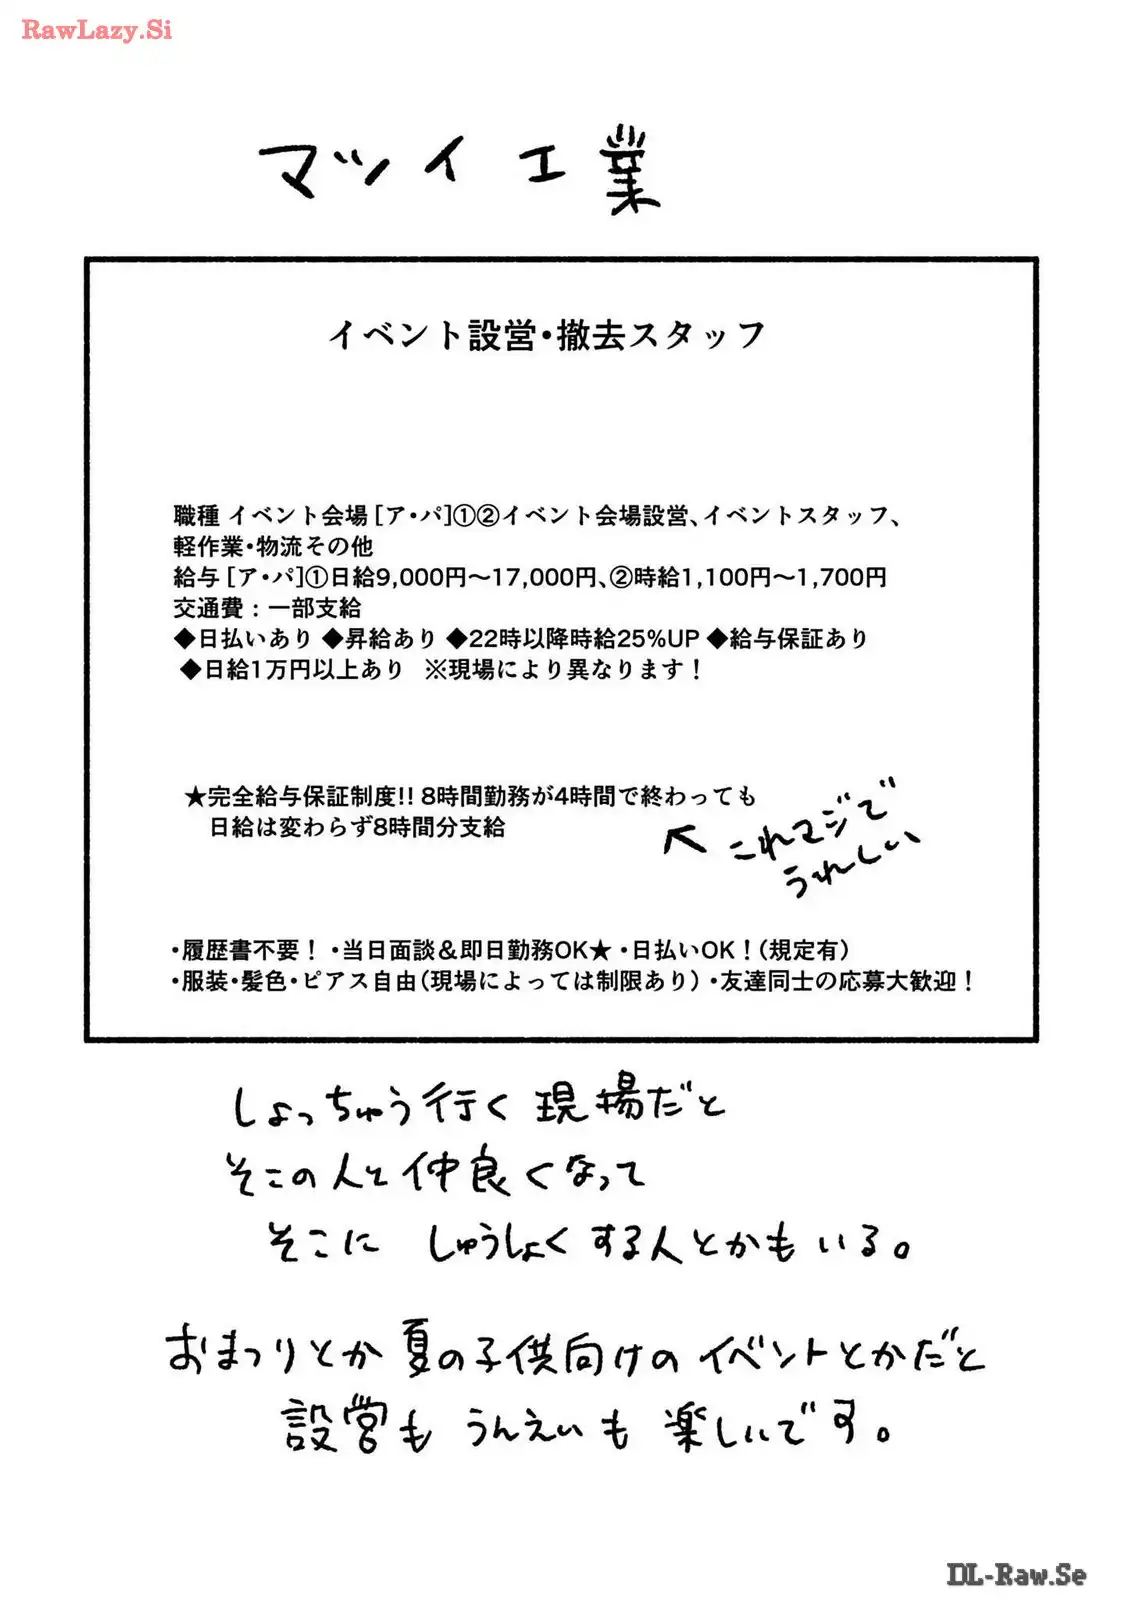 RawLazy.Si
マツイ工業
イベント設営・撤去スタッフ
職種 イベント会場［ア・パ］①②イベント会場設営、イベントスタッフ、
軽作業・物流その他
給与［ア・パ］①日給9,000円〜17,000円、②時給1,100円〜1,700円
交通費：一部支給
◆日払いあり ◆昇給あり ◆22時以降時給25%UP ◆給与保証あり
◆日給1万円以上あり ※現場により異なります！
★完全給与保証制度!! 8時間勤務が4時間で終わっても
日給は変わらず8時間分支給
↖ これマジで
うれしい
・履歴書不要！ ・当日面談＆即日勤務OK★ ・日払いOK！（規定有）
・服装・髪色・ピアス自由（現場によっては制限あり） ・友達同士の応募大歓迎！
しょっちゅう行く現場だと
そこの人と仲良くなって
そこに しゅうしょくする人とかもいる。
おまつりとか夏の子供向けのイベントとかだと
設営も うんえいも 楽しいです。
DL-Raw.Se